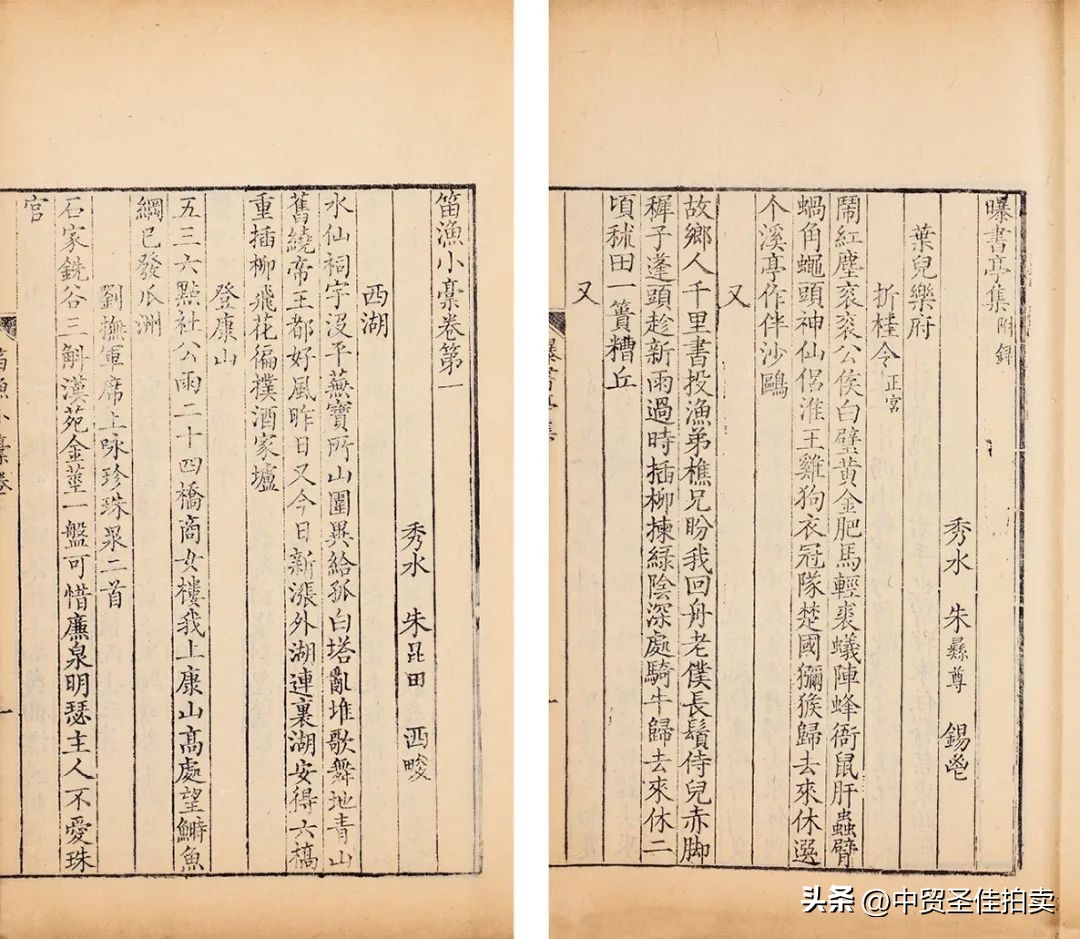 曝書亭集附錄
秀水 朱彝尊 錫鬯
葉兒樂府
折桂令正宮
鬧紅塵衮衮公侯白璧黄金肥馬輕裘蟻陣蜂衙鼠肝蟲臂
蝸角蠅頭神仙侣淮王雞狗衣冠隊楚國獼猴歸去來休選
个溪亭作伴沙鷗
又
故鄉人千里書投漁弟樵兄盼我回舟老僕長鬚侍兒赤脚
穉子蓬頭趁新雨過時插柳揀綠陰深處騎牛歸去來休二
頃秫田一簣糟丘
又
笛漁小稾卷第一
秀水 朱昆田 西畯
西湖
水仙祠宇没平蕪寶所山圍異給孤白塔亂堆歌舞地青山
舊繞帝王都好風昨日又今日新漲外湖連裏湖安得六橋
重插柳飛花徧撲酒家壚
登康山
五三六點社公雨二十四橋商女樓我上康山高處望鰣魚
綱已發瓜洲
劉撫軍席上咏珍珠泉二首
石家銑谷三斛漢苑金莖一盤可惜廉泉明瑟主人不愛珠
宮
笛漁小稾卷
头条 @中贸圣佳拍卖